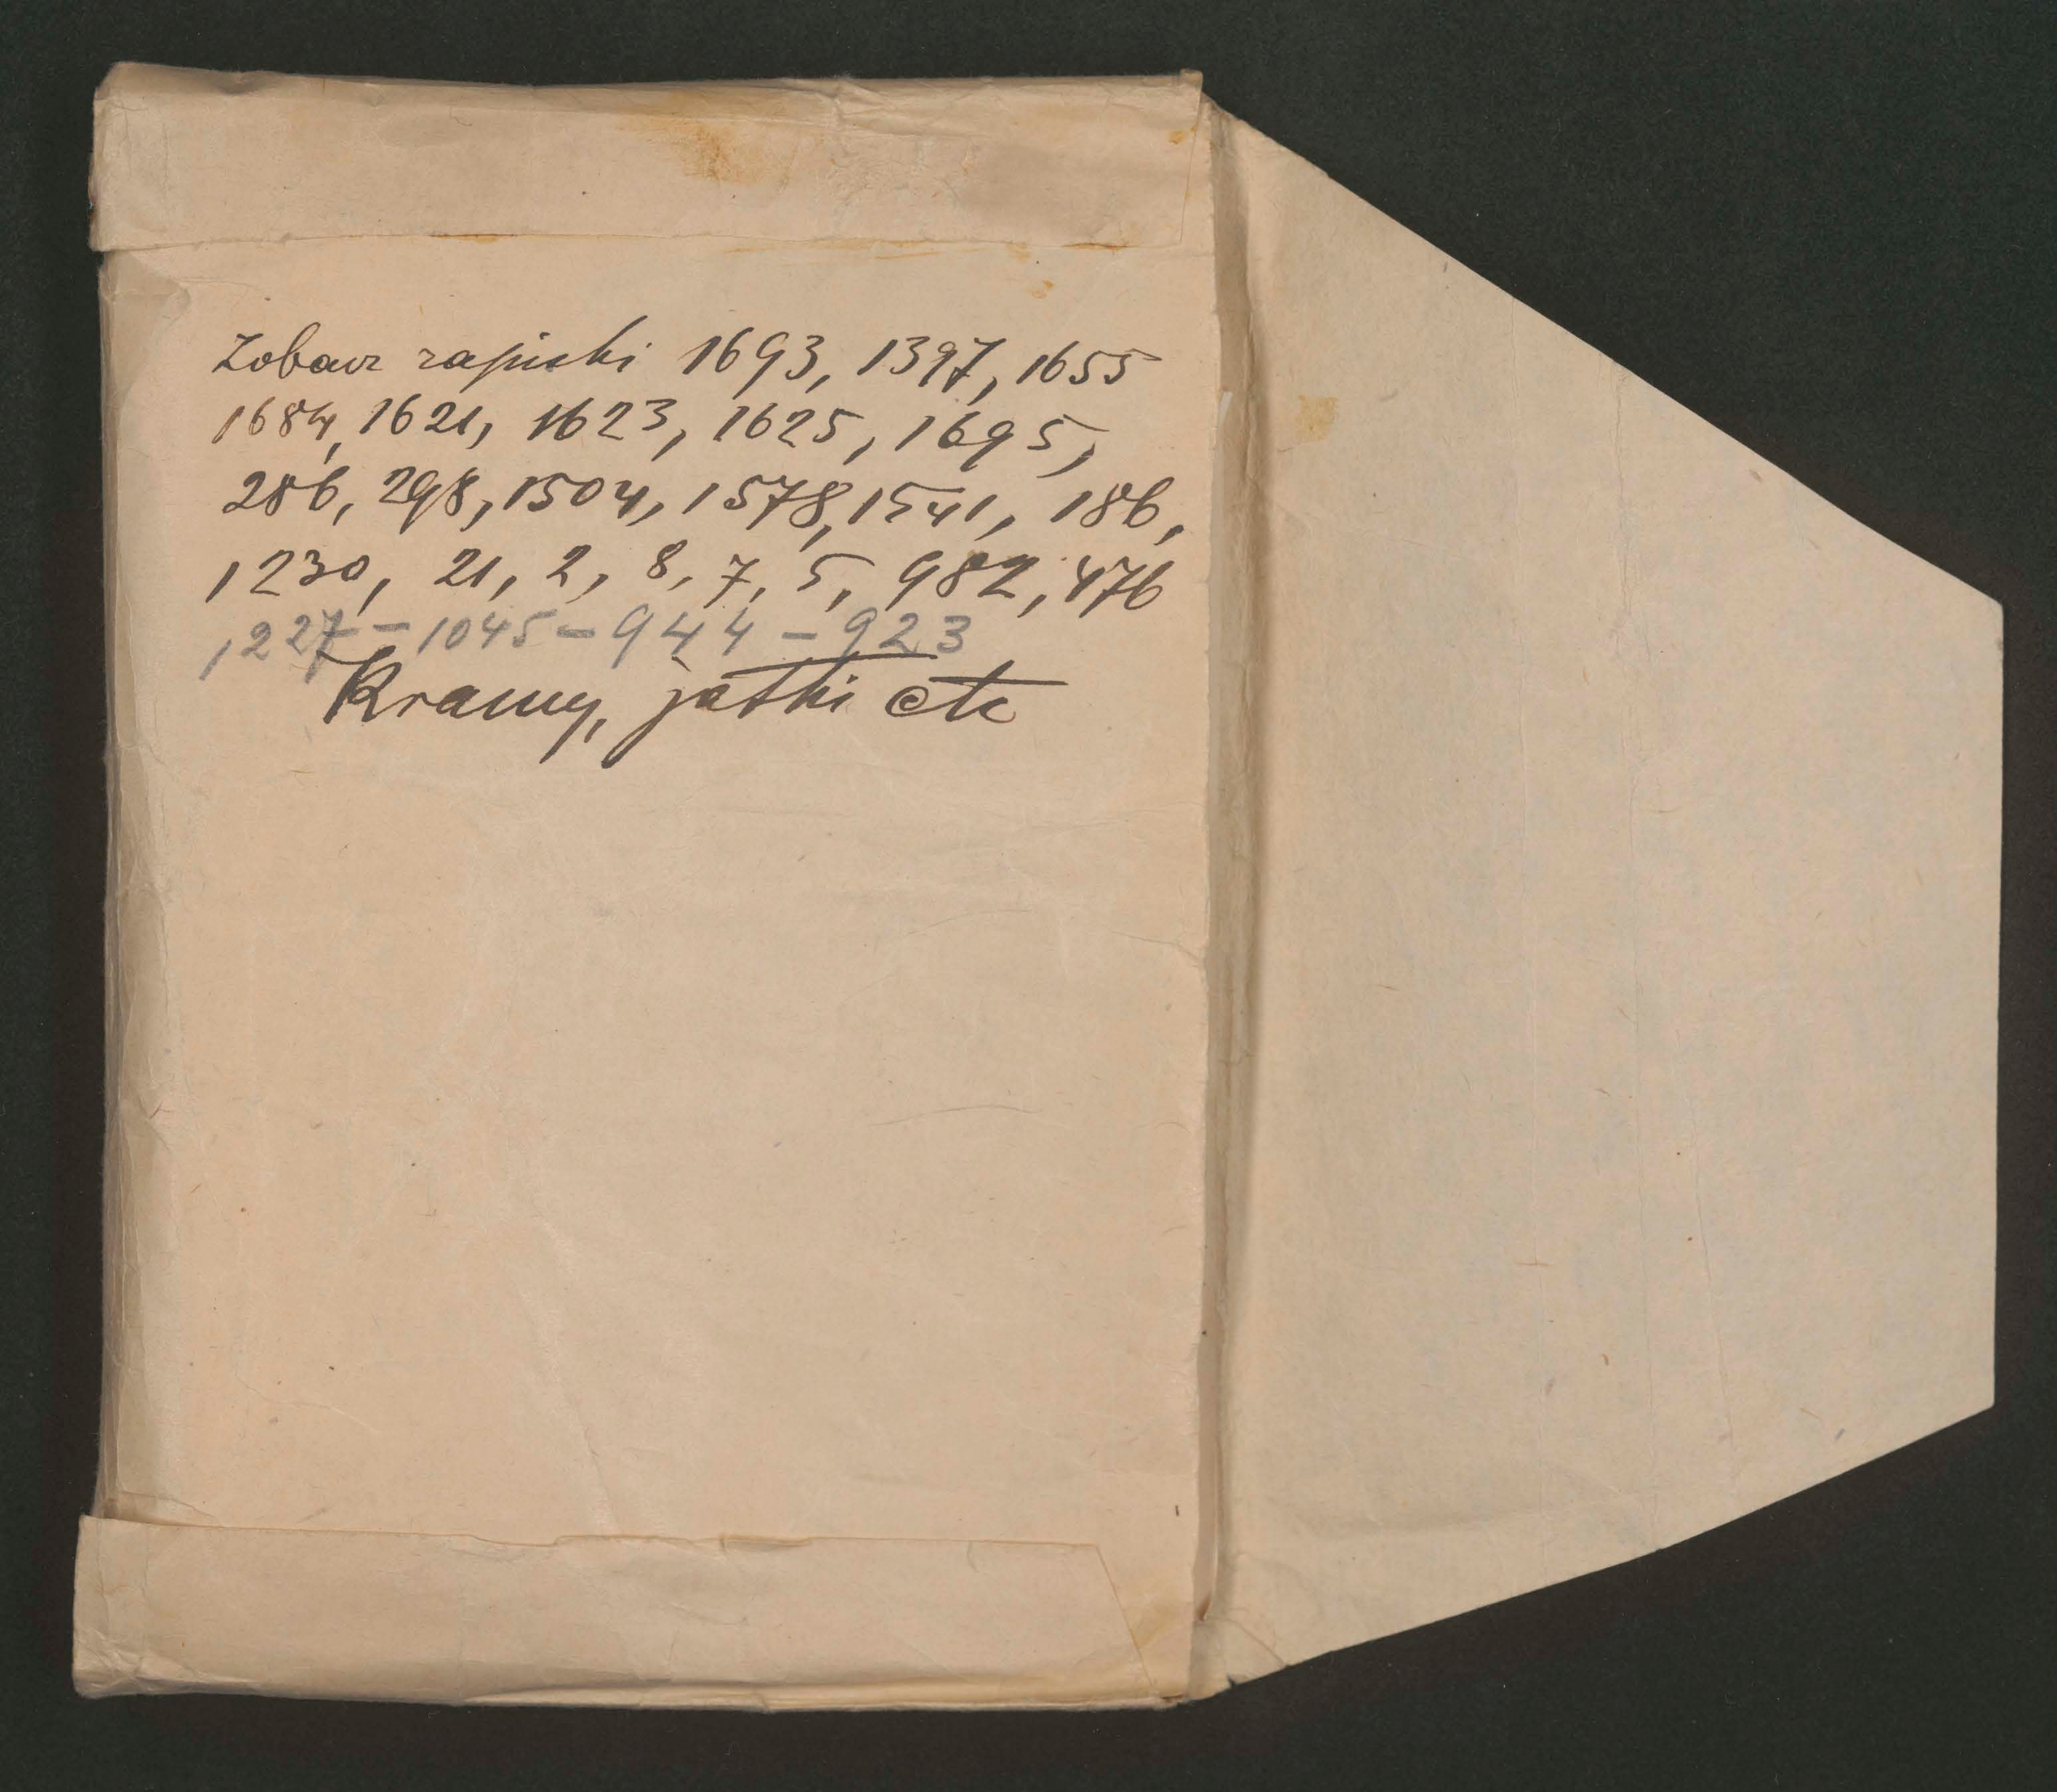 Zobacz zapiski 1693, 1397, 1655
1684, 1621, 1623, 1625, 1695,
286, 298, 1504, 1578, 1541, 186,
1230, 21, 2, 8, 7, 5, 982, 476
1227 - 1045 - 944 - 923
Kramy, jatki etc